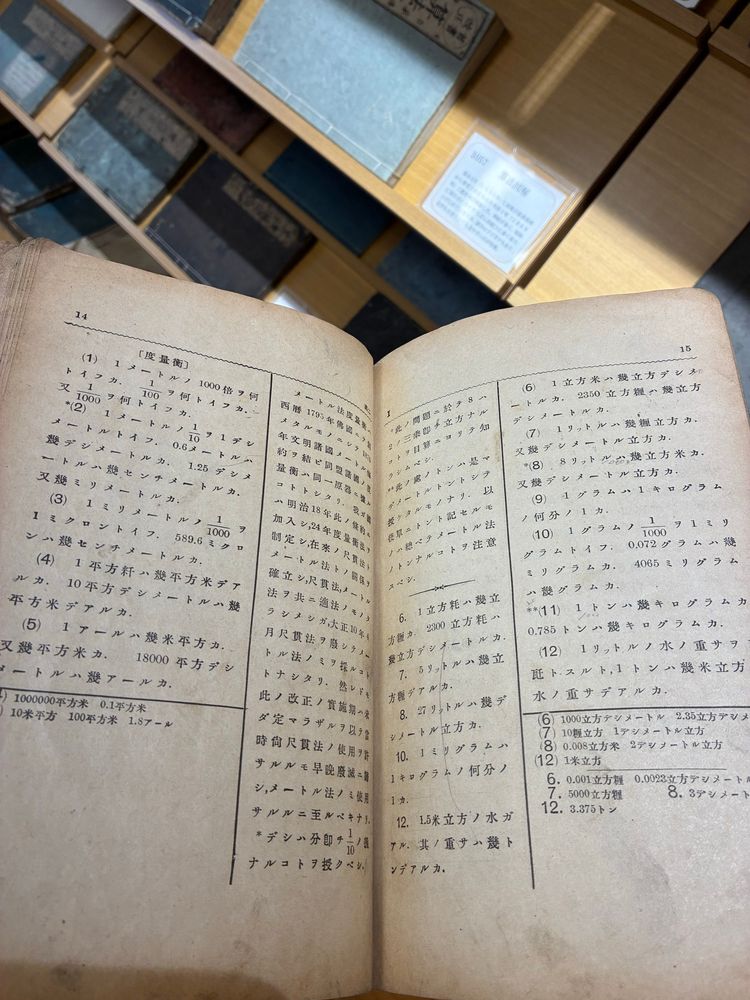 14
〔度量衡〕
(1) 1 メートルノ 1000 倍ヲ何
トイフカ. 1/100 ヲ何トイフカ.
又 1/1000 ヲ何トイフカ.
*(2) 1 メートルノ 1/10 ヲ 1 デシ
メートルトイフ. 0.6メートルハ
幾デシメートルカ. 1.25 デシメ
ートルハ幾センチメートルカ.
又幾ミリメートルカ.
(3) 1 ミリメートルノ 1/1000 ヲ
1 ミクロントイフ. 589.6 ミクロ
ンハ幾センチメートルカ.
(4) 1 平方粁ハ幾平方米デア
ルカ. 10平方デシメートルハ幾
平方米デアルカ.
(5) 1 アールハ幾米平方カ.
又幾平方米カ. 18000 平方デシ
メートルハ幾アールカ.
1000000平方米 0.1平方米
10米平方 100平方米 1.8アール
メートル法度量衡ハ
西暦1795年佛國ニテ
メタルモノニシテ
年文明諸國メートル
約ヲ結ビ同盟諸國
量衡ハ同一原器ニ
コトトシタリ. 我ガ國
ハ明治18年此ノ條約ニ
加入シ,24年度量衡法ヲ
制定シ,在來ノ尺貫法ト
メートル法トノ關係ヲ
確立シ,尺貫法,メートル
法ヲ共ニ適法ノモノタ
ラシメシガ,大正10年4
月尺貫法ヲ廢シテメー
トル法ノミヲ採ルコト
トナシタリ. 然レドモ
此ノ改正ノ實施期ハ未
ダ定マラザルヲ以テ當
時尙尺貫法ノ使用ヲ許
サルルモ早晩廢滅ニ歸
シ,メートル法ノミ使用
サルルニ至ルベキナリ.
*デシハ分卽チ 1/10 ノ幾
ナルコトヲ授クベシ.
15
*此ノ問題ニ於テ8ハ
2ノ三乘卽チ立方ナル
コトヲ目算ニヨリテ知
ラシムベシ.
**此ノ處ノトンハ是マ
デメートルトントシテ
授ケタルモノナリ. 以
後單ニトント記セルモ
ノハ總ベテメートル法
ノトンナルコトヲ注意
スベシ.
6. 1 立方粍ハ幾立
方糎カ. 2300 立方粍ハ
幾立方デシメートルカ.
7. 5 リットルハ幾立
方糎デアルカ.
8. 27 リットルハ幾デ
シメートル立方カ.
10. 1 ミリグラムハ
1 キログラムノ何分ノ
1 カ.
12. 1.5米立方ノ水ガ
アル. 其ノ重サハ幾ト
ンデアルカ.
(6) 1 立方米ハ幾立方デシメ
ートルカ. 2350 立方糎ハ幾立方
デシメートルカ.
(7) 1 リットルハ幾糎立方カ.
又幾デシメートル立方カ.
*(8) 8 リットルハ幾立方米カ.
又幾デシメートル立方カ.
(9) 1 グラムハ 1 キログラム
ノ何分ノ 1 カ.
(10) 1 グラムノ 1/1000 ヲ 1 ミリ
グラムトイフ. 0.072 グラムハ幾
ミリグラムカ. 4065 ミリグラム
ハ幾グラムカ.
**(11) 1 トンハ幾キログラムカ
0.785 トンハ幾キログラムカ.
(12) 1 リットルノ水ノ重サヲ
瓩トスルト,1 トンハ幾米立方
水ノ重サデアルカ.
(6) 1000立方デシメートル 2.35立方デシメ
(7) 10糎立方 1デシメートル立方
(8) 0.008立方米 2デシメートル立方
(12) 1米立方
6. 0.001立方糎 0.0023立方デシメート
7. 5000立方糎 8. 3デシメート
12. 3.375トン